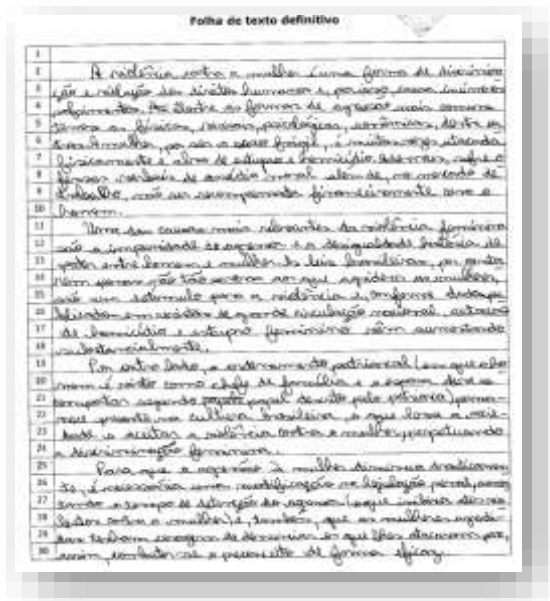 Folha de texto definitivo
1
2 A violência contra a mulher é uma forma de discrimina-
3 ção e violação dos direitos humanos e, por isso, causa inúmeros
4 sofrimentos. Dentre as formas de agressão mais comuns
5 temos as físicas, sexuais, psicológicas, econômicas, dentre ou-
6 tras. A mulher, por ser o sexo frágil, é muitas vezes atacada
7 fisicamente e alvo de estupro e homicídio. Ademais, sofre o
8 de assédio moral além de, no mercado de
9 trabalho, não ser recompensada financeiramente como o
10 homem.
11 Uma das causas mais relevantes da violência feminina
12 são a impunidade do agressor e a desigualdade histórica de
13 poder entre homem e mulher. As leis brasileiras, por
14 tão severas aos que agridem as mulheres,
15 são um estímulo para a violência e, conforme dados pu-
16 blicados em de grande circulação nacional, os casos
17 de homicídio e estupro feminino vêm aumentando
18 substancialmente.
19 Por outro lado, o ordenamento patriarcal (em que o ho-
20 mem é visto como chefe de família e a esposa deve se
21 comportar segundo papel descrito pelo patriarca) perma-
22 nece presente na cultura brasileira, o que leva a socie-
23 dade a aceitar a violência contra a mulher, perpetuando
24 a discriminação feminina.
25 Para que a agressão à mulher diminua drasticamen-
26 te, é necessária uma modificação na legislação penal, aumen-
27 tando o tempo de detenção do agressor (o que inibiria
28 contra a mulher) e, também, que as mulheres agredi-
29 das tenham coragem de denunciar os que lhes atacaram para,
30 assim, combater-se o preconceito de forma eficaz.